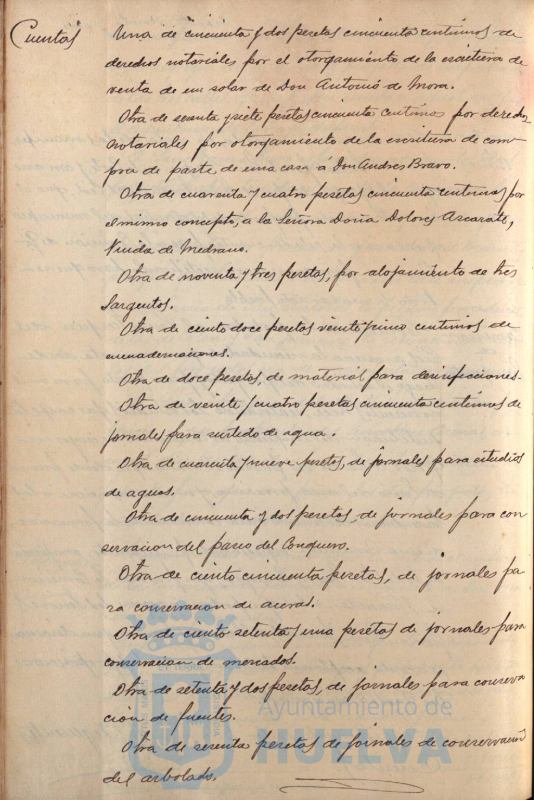 Cuentas
Una de cincuenta y dos pesetas cincuenta centimos de
derechos notariales por el otorgamiento de la escritura de
venta de un solar de Don Antonio de Mora.
Otra de sesenta y siete pesetas cincuenta centimos por derechos
notariales por otorgamiento de la escritura de com
pra de parte de una casa á Don Andres Bravo.
Otra de cuarenta y cuatro pesetas cincuenta centimos por
el mismo concepto, a la Señora Doña Dolores Ascarate,
Viuda de Medrano.
Otra de noventa y tres pesetas, por alojamiento de tres
Sargentos.
Otra de ciento doce pesetas veinte y cinco centimos de
encuadernaciones.
Otra de doce pesetas, de material para desinfecciones.
Otra de veinte y cuatro pesetas cincuenta centimos de
jornales para surtido de agua.
Otra de cuarenta y nueve pesetas, de jornales para estudios
de aguas.
Otra de cincuenta y dos pesetas, de jornales para con
servacion del paseo del Conquero.
Otra de ciento cincuenta pesetas, de jornales pa
ra conservacion de aceras.
Otra de ciento setenta y una pesetas de jornales para
conservacion de mercados.
Otra de setenta y dos pesetas, de jornales para conserva
cion de fuentes.
Otra de sesenta pesetas de jornales de conservacion
del arbolado.
Ayuntamiento de
HUELVA